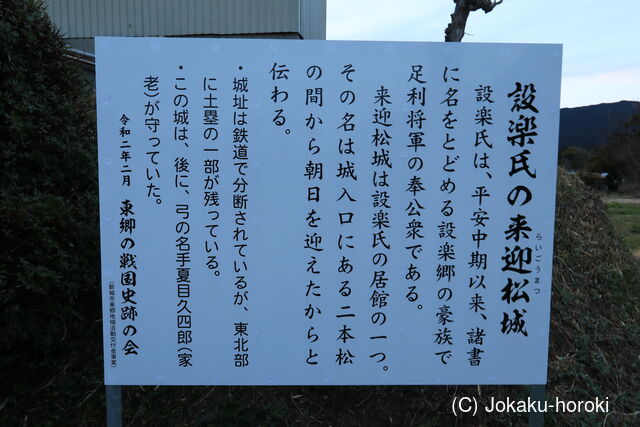 設楽氏の来迎松城
らいごうまつ
設楽氏は、平安中期以来、諸書
に名をとどめる設楽郷の豪族で
足利将軍の奉公衆である。
来迎松城は設楽氏の居館の一つ。
その名は城入口にある二本松
の間から朝日を迎えたからと
伝わる。
・城址は鉄道で分断されているが、東北部
に土塁の一部が残っている。
・この城は、後に、弓の名手夏目久四郎(家
老)が守っていた。
令和二年二月 東郷の戦国史跡の会
(新城市東郷地域活動交付金事業)
(C) Jokaku-horoki